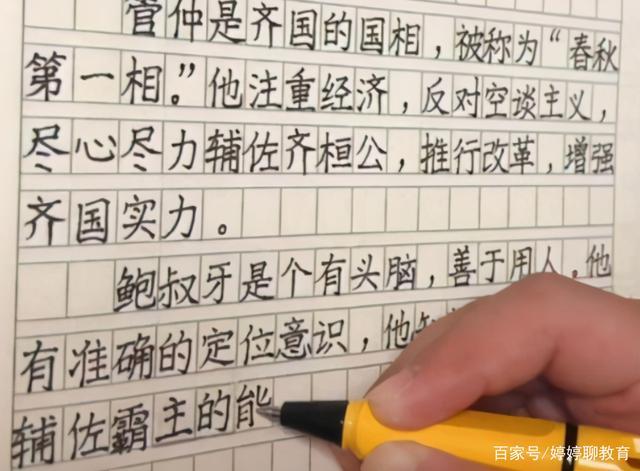 管仲是齐国的国相，被称为“春秋
第一相。”他注重经济，反对空谈主义，
尽心尽力辅佐齐桓公，推行改革，增强
齐国实力。
鲍叔牙是个有头脑，善于用人。他
有准确的定位意识，他知
辅佐霸主的能
百家号/婷婷聊教育